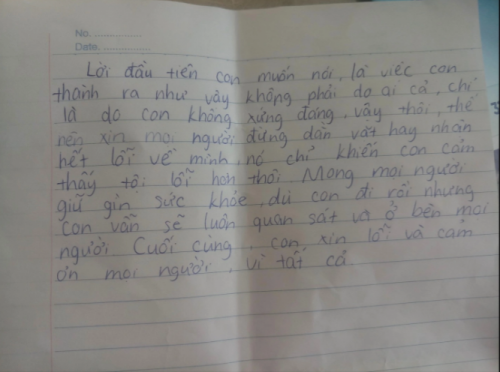 No. ............
Date. ............
Lời đầu tiên con muốn nói, là việc con
thành ra như vậy không phải do ai cả, chỉ
là do con không xứng đáng, vậy thôi, thế
nên xin mọi người đừng dằn vặt hay nhận
hết lỗi về mình, nó chỉ khiến con cảm
thấy tội lỗi hơn thôi Mong mọi người
giữ gìn sức khỏe, dù con đi rồi nhưng
con vẫn sẽ luôn quan sát và ở bên mọi
người Cuối cùng, con xin lỗi và cảm
ơn mọi người, vì tất cả.